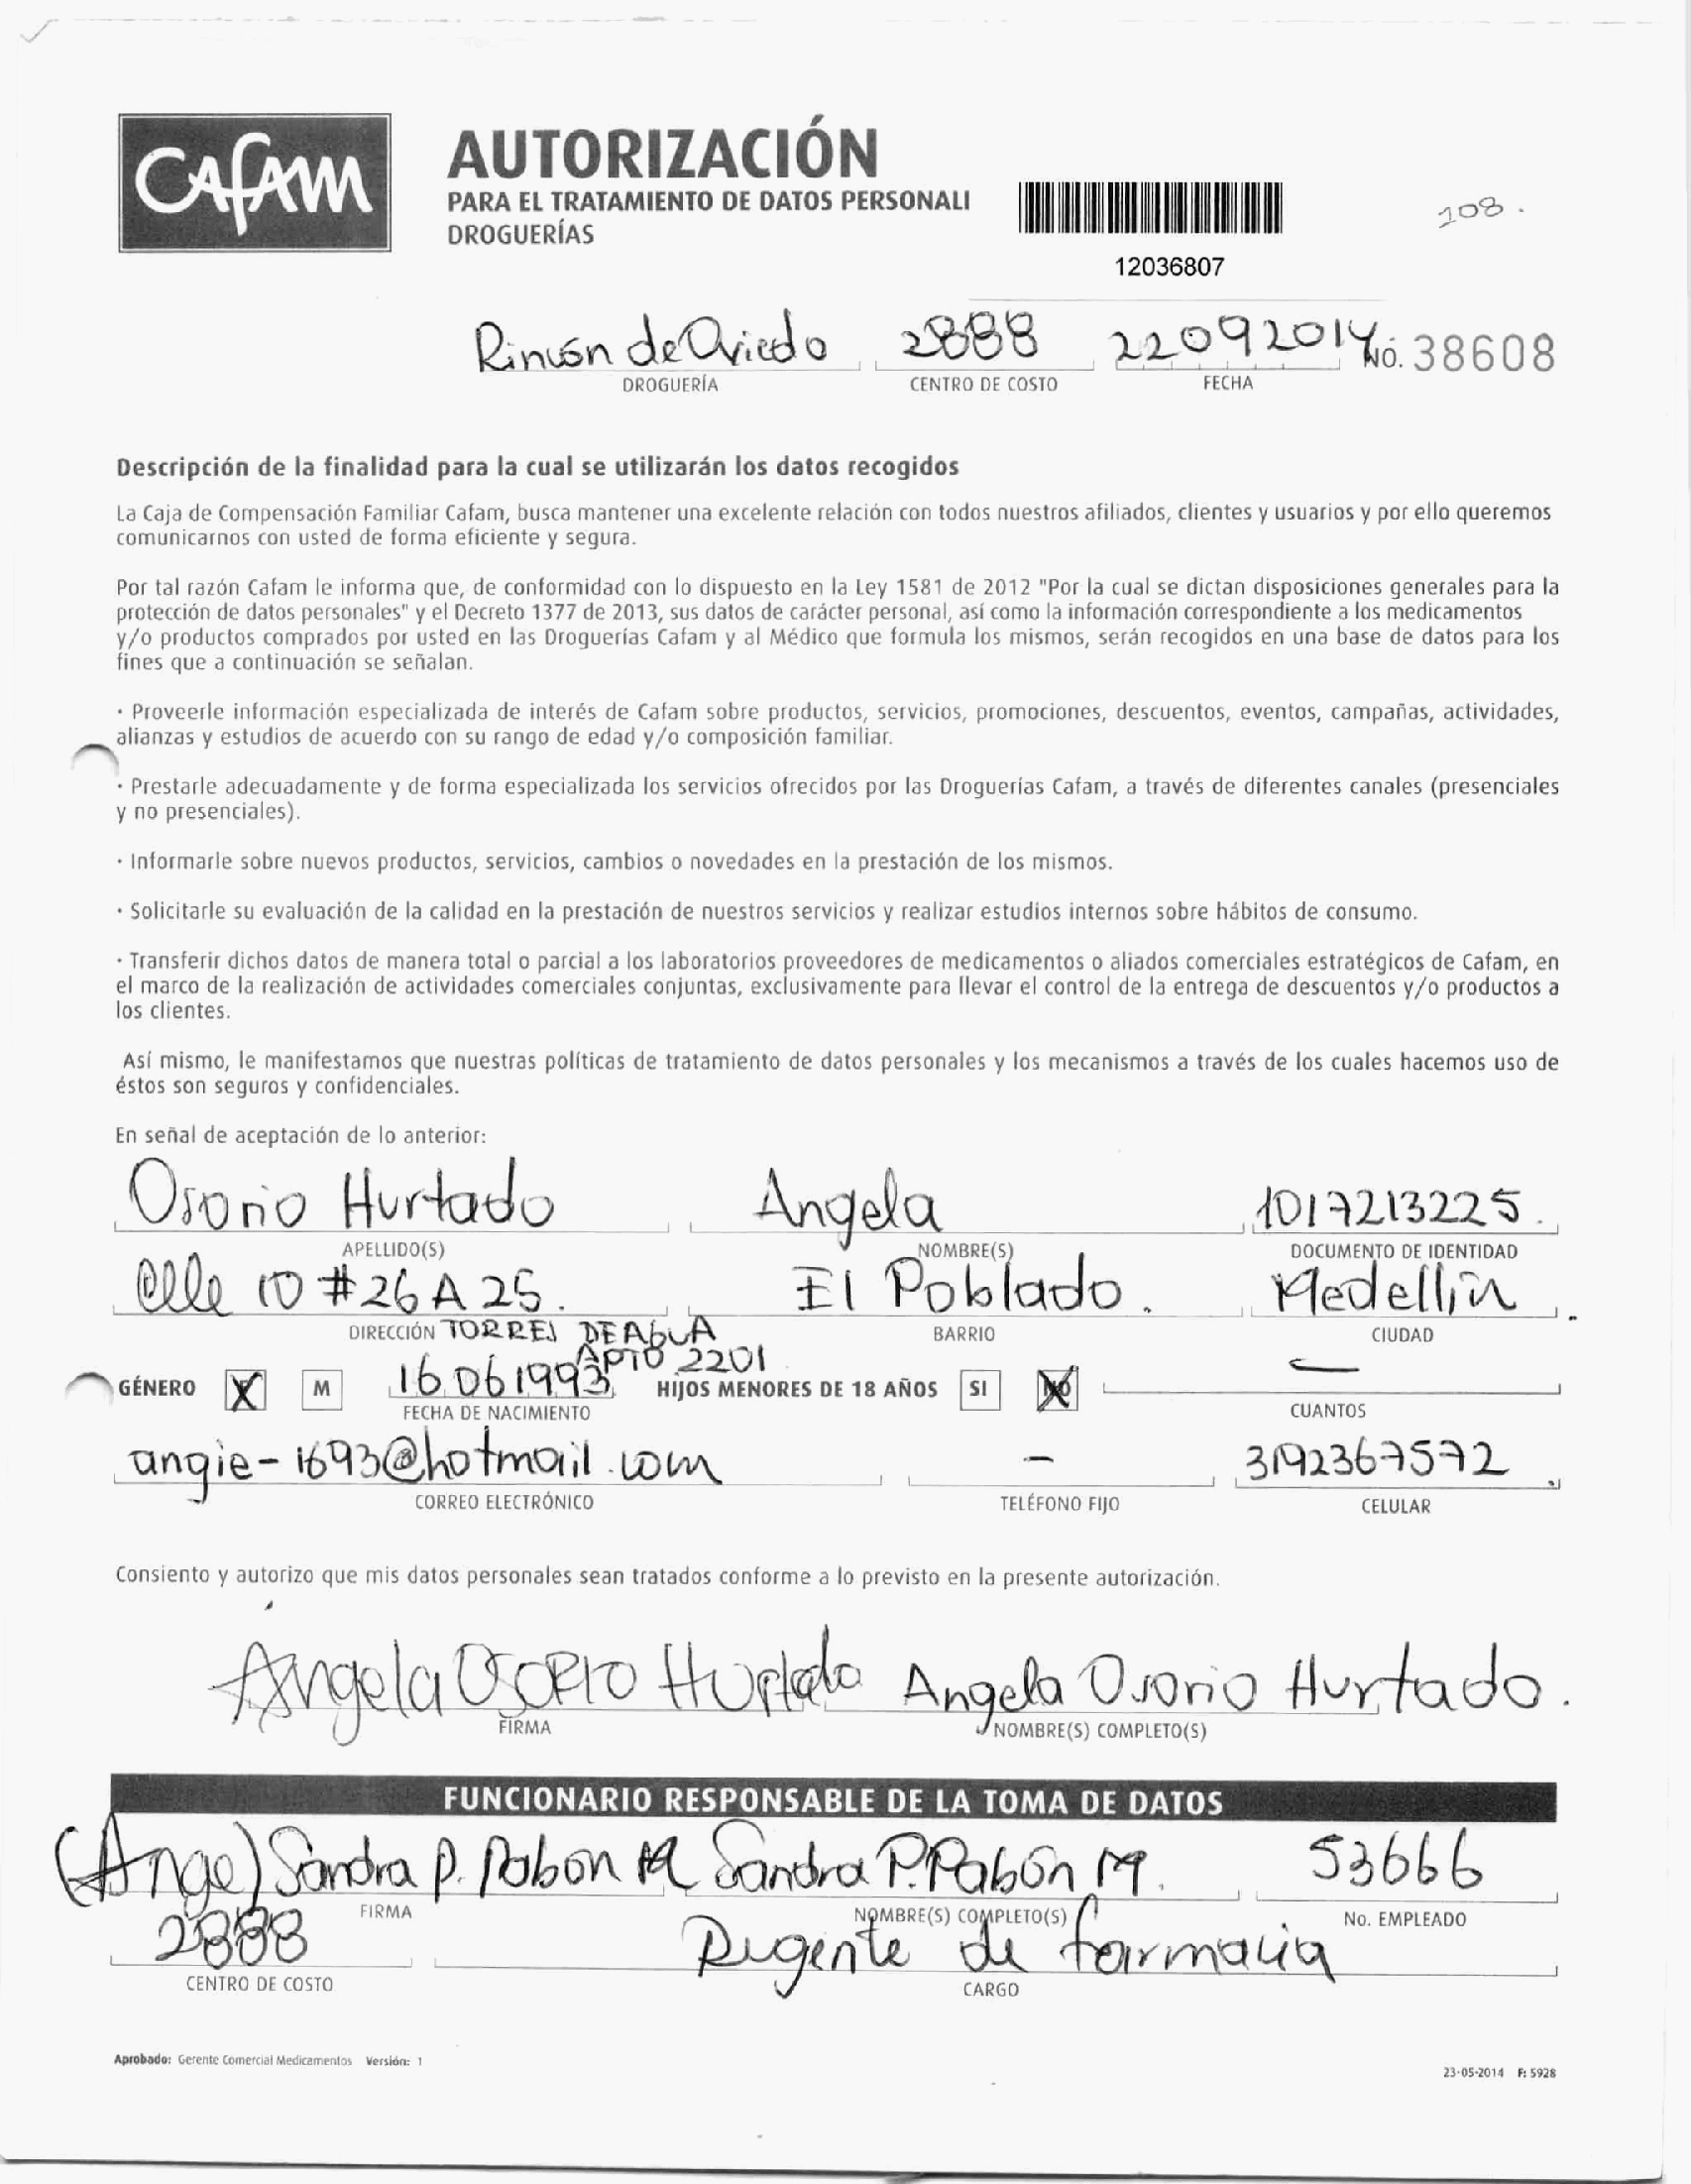 CAFAM
AUTORIZACIÓN
PARA EL TRATAMIENTO DE DATOS PERSONALI
DROGUERÍAS
12036807
108.
Rincón de Oviedo 2888 22092014 No. 38608
DROGUERÍA CENTRO DE COSTO FECHA
Descripción de la finalidad para la cual se utilizarán los datos recogidos
La Caja de Compensación Familiar Cafam, busca mantener una excelente relación con todos nuestros afiliados, clientes y usuarios y por ello queremos
comunicarnos con usted de forma eficiente y segura.
Por tal razón Cafam le informa que, de conformidad con lo dispuesto en la Ley 1581 de 2012 "Por la cual se dictan disposiciones generales para la
protección de datos personales" y el Decreto 1377 de 2013, sus datos de carácter personal, así como la información correspondiente a los medicamentos
y/o productos comprados por usted en las Droguerías Cafam y al Médico que formula los mismos, serán recogidos en una base de datos para los
fines que a continuación se señalan.
· Proveerle información especializada de interés de Cafam sobre productos, servicios, promociones, descuentos, eventos, campañas, actividades,
alianzas y estudios de acuerdo con su rango de edad y/o composición familiar.
· Prestarle adecuadamente y de forma especializada los servicios ofrecidos por las Droguerías Cafam, a través de diferentes canales (presenciales
y no presenciales).
· Informarle sobre nuevos productos, servicios, cambios o novedades en la prestación de los mismos.
· Solicitarle su evaluación de la calidad en la prestación de nuestros servicios y realizar estudios internos sobre hábitos de consumo.
· Transferir dichos datos de manera total o parcial a los laboratorios proveedores de medicamentos o aliados comerciales estratégicos de Cafam, en
el marco de la realización de actividades comerciales conjuntas, exclusivamente para llevar el control de la entrega de descuentos y/o productos a
los clientes.
Así mismo, le manifestamos que nuestras políticas de tratamiento de datos personales y los mecanismos a través de los cuales hacemos uso de
éstos son seguros y confidenciales.
En señal de aceptación de lo anterior:
Osorio Hurtado Angela 1017213225.
APELLIDO(S) NOMBRE(S) DOCUMENTO DE IDENTIDAD
Clle 10 #26 A 25. El Poblado. Medellin.
DIRECCIÓN TORRES DE AGUA BARRIO CIUDAD
APTO 2201
GÉNERO X M 16061993 HIJOS MENORES DE 18 AÑOS SI NO –
FECHA DE NACIMIENTO CUANTOS
angie-1693@hotmail.com – 3192367572.
CORREO ELECTRÓNICO TELÉFONO FIJO CELULAR
Consiento y autorizo que mis datos personales sean tratados conforme a lo previsto en la presente autorización.
Angela Osorio Hurtado Angela Osorio Hurtado.
FIRMA NOMBRE(S) COMPLETO(S)
FUNCIONARIO RESPONSABLE DE LA TOMA DE DATOS
(Ange) Sandra P. Pabon M Sandra P. Pabón M. 53666
FIRMA NOMBRE(S) COMPLETO(S) No. EMPLEADO
2888 Regente de farmacia
CENTRO DE COSTO CARGO
Aprobado: Gerente Comercial Medicamentos Versión: 1
23-05-2014 F: 5928